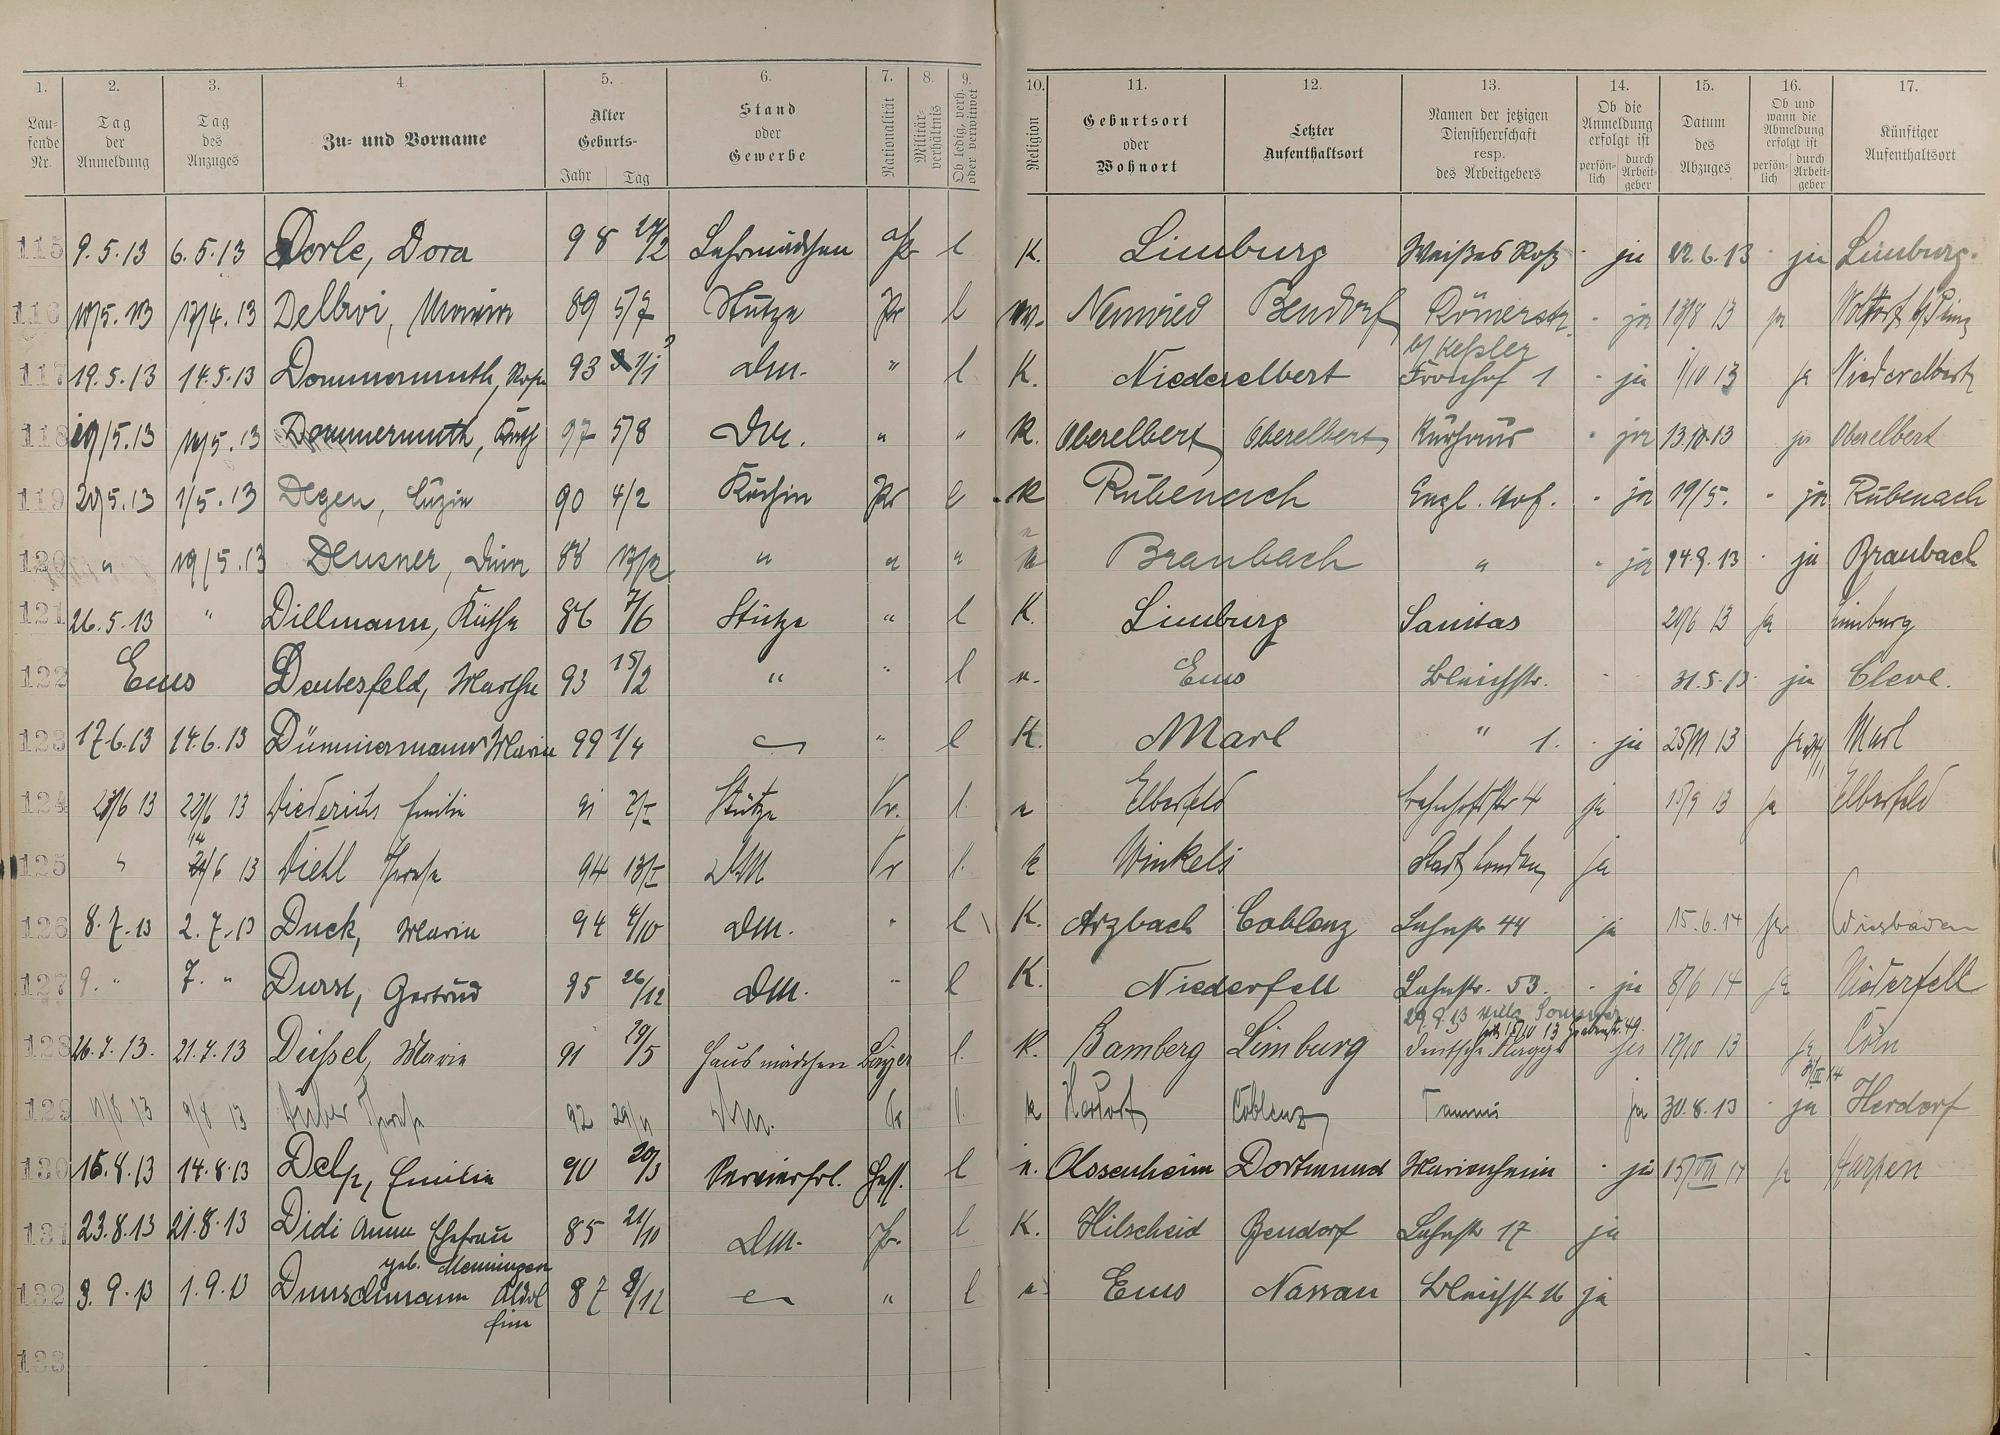 1. 2. 3. 4. 5. 6. 7. 8. 9. 10. 11. 12. 13. 14. 15. 16. 17.
Lau- fende Nr. Tag der Anmeldung Tag des Anzuges Zu- und Vorname Alter Geburts- Jahr Tag Stand oder Gewerbe Nationalität Militär- verhältnis Ob ledig, verh. oder verwitwet Religion Geburtsort oder Wohnort Letzter Aufenthaltsort Namen der jetzigen Dienstherrschaft resp. des Arbeitgebers Ob die Anmeldung erfolgt ist persön- lich durch Arbeit- geber Datum des Abzuges Ob und wann die Abmeldung erfolgt ist persön- lich durch Arbeit- geber Künftiger Aufenthaltsort
115 9.5.13 6.5.13 Dorle, Dora 98 Lehrmädchen l K. Limburg Weißes Roß ja 22.6.13 ja Limburg.
116 17/4.13 89 5/7 Stütze Pr l Neuwied Bendorf Römerstr. ja 13
117 19.5.13 14.5.13 Dommermuth, Rosa 93 1/1 Dm. " l K. Niederelbert b/ Keßler Fronhof 1 ja 1/10 13 ja Niederelbert
118 19/5.13 5.13 Dommermuth, Käth 97 5/8 Dm. " " K. Oberelbert Oberelbert Kurhaus ja 13.10.13 ja Oberelbert
119 20/5.13 1/5.13 Degen, Luzie 90 4/2 Köchin Pr l K Rübenach Engl. Hof. ja 19/5. ja Rübenach
120 " 19/5.13 Deusner, 88 " " " Braubach " ja 9.13 ja Braubach
121 26.5.13 " Dillmann, Käthe 86 7/6 Stütze " l K. Limburg Sanitas 13 ja Limburg
122 Ems Deutesfeld, Marthe 93 15/2 " " l e. Ems Bleichstr. 31.5.13 ja Cleve.
123 17.6.13 14.6.13 Dümmermann Maria 99 1/4 " l K. Marl " 1. ja 25/11 13 ja Marl
124 6 13 22/6 13 Diederichs Emilie 91 Stütze Pr. l. e Elberfeld Bahnhofstr 4 ja 15/9 13 ja Elberfeld
125 " 6 13 Diehl Therese 94 DM Pr l. k Winkels Stadt London ja
126 8.7.13 2.7.13 Duck, Maria 94 4/10 Dm. " l K. Arzbach Coblenz Lahnstr 44 ja 15.6.14 ja Wiesbaden
127 9. " 7. " Durst, Gertrud 95 26/12 Dm. " l K. Niederfell Lahnstr. 53. ja 8/6 14 ja Niederfell
128 26.7.13. 21.7.13 Düssel, Marie 91 29/5 Hausmädchen Bayer l. k. Bamberg Limburg 29.9.13 Villa 13 Grabenstr. 49. deutsche Flagge ja 13 ja Cöln
129 11/8 13 9/8 13 Therese 92 29/11 Dm. Pr l. k Herdorf Coblenz Taunus ja 30.8.13 ja Herdorf
130 16.8.13 14.8.13 Delp, Emilie 90 20/3 Servierfrl. Hess. l e. Ossenheim Dortmund Marienheim ja 15/VII 14 ja Harpen
131 23.8.13 21.8.13 Didi Anna Ehefrau geb. Menningen 85 21/10 Dm. Pr. l K. Hilscheid Bendorf Lahnstr 17 ja
132 3.9.13 1.9.13 Dunschmann 87 8/12 " l e Ems Nassau Bleichstr 16 ja
133